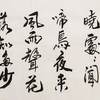 曉處〻聞
啼鳥夜来
風雨聲花
落知多少